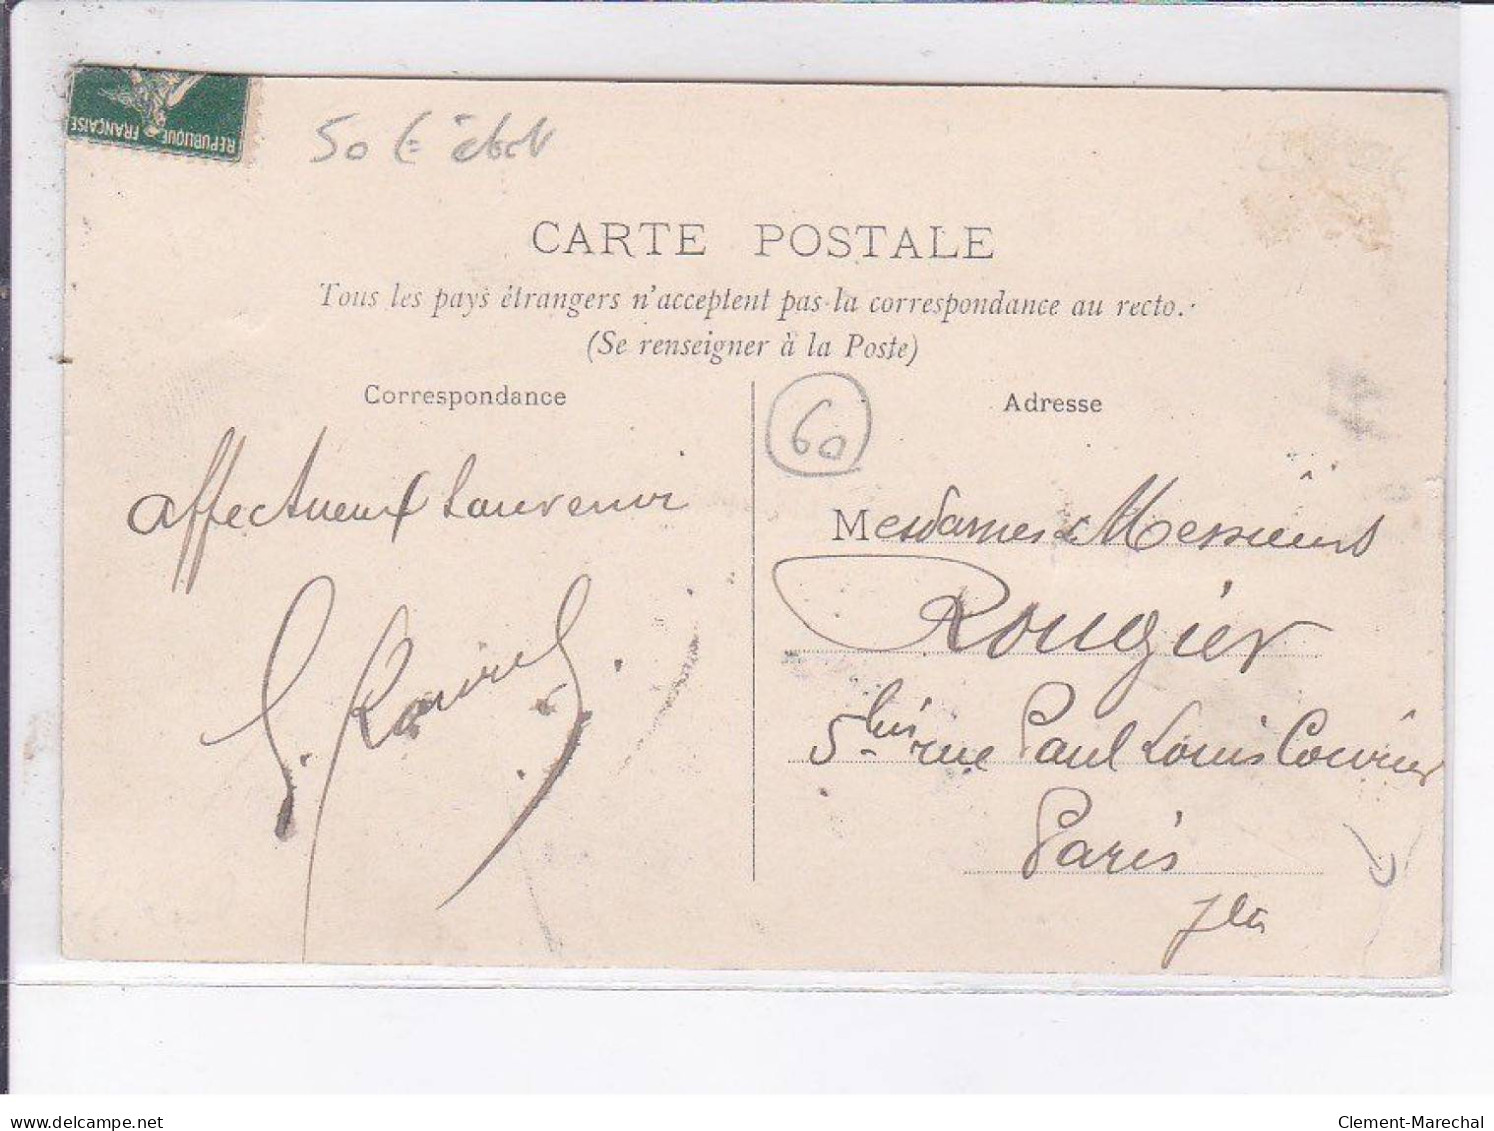 RÉPUBLIQUE FRANÇAISE
50 €
CARTE POSTALE
Tous les pays étrangers n'acceptent pas la correspondance au recto.
(Se renseigner à la Poste)
Correspondance
affectueux souvenir
Adresse
60
Mesdames & Messieurs
Rougier
5 bis rue Paul Louis Courier
Paris
7e
delcampe.net
Clement-Marechal